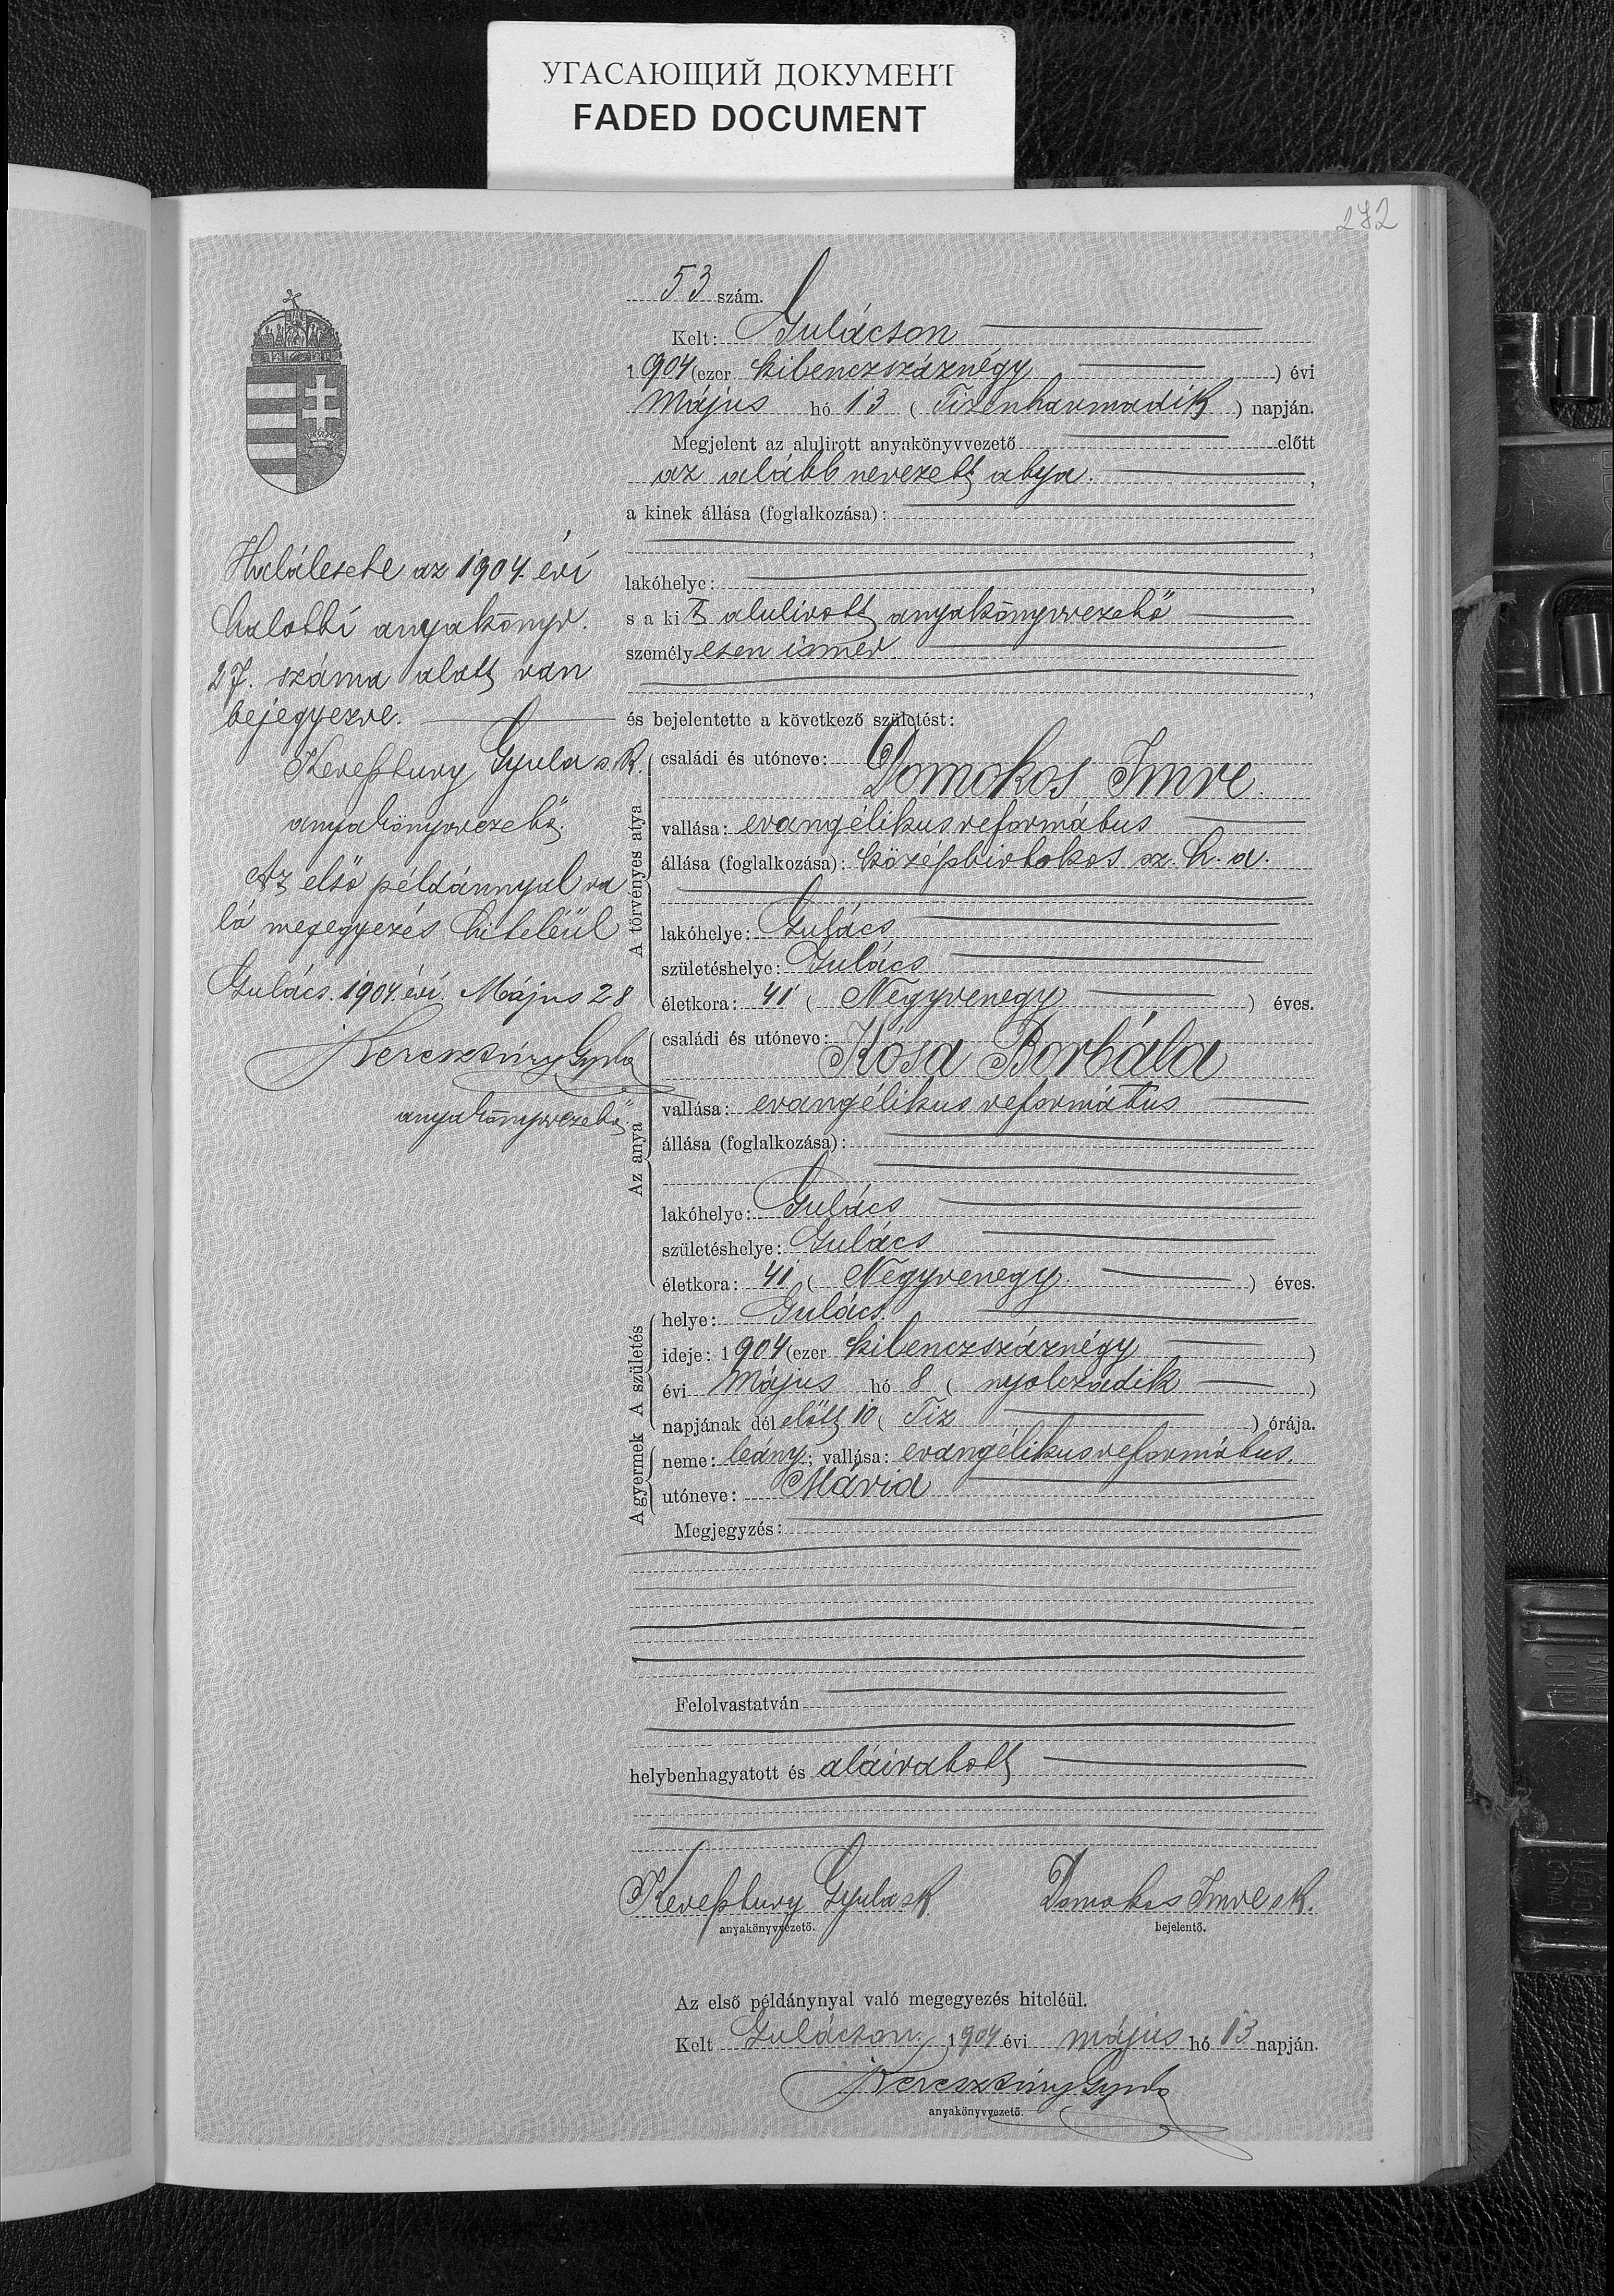 УГАСАЮЩИЙ ДОКУМЕНТ
FADED DOCUMENT
272
53 szám.
Kelt: Gulácson
1904 (ezer kilenczszáznégy ) évi
Május hó 13 ( Tizenharmadik ) napján.
Megjelent az alulirott anyakönyvvezető előtt
az alább nevezett atya.
a kinek állása (foglalkozása):
lakóhelye:
s a kit alulirott anyakönyvvezető
személyesen ismer
és bejelentette a következő születést:
Halálesete az 1904. évi
halotti anyakönyv.
27. száma alatt van
bejegyezve.
Kereßtury Gyula s. k.
anyakönyvvezető.
Az első példánnyal va
ló megegyezés hiteléül
Gulács. 1904. évi. Május 28
Keresztúry Gyula
anyakönyvvezető.
A törvényes atya
családi és utóneve: Domokos Imre.
vallása: evangélikus református
állása (foglalkozása): középbirtokos sz. h. a.
lakóhelye: Gulács
születéshelye: Gulács
életkora: 41 ( Negyvenegy ) éves.
Az anya
családi és utóneve: Kósa Borbála
vallása: evangélikus református
állása (foglalkozása):
lakóhelye: Gulács
születéshelye: Gulács
életkora: 41 ( Negyvenegy. ) éves.
A születés
helye: Gulács.
ideje: 1904 (ezer kilenczszáznégy )
évi Május hó 8 ( nyolczadik )
napjának dél előtt 10 ( Tiz ) órája.
A gyermek
neme: leány; vallása: evangélikus református.
utóneve: Mária
Megjegyzés:
Felolvastatván
helybenhagyatott és aláiratott
Kereßtury Gyula sk. Domokos Imre sk.
anyakönyvvezető. bejelentő.
Az első példánynyal való megegyezés hiteléül.
Kelt Gulácson. 1904 évi május hó 13 napján.
Keresztúry Gyula
anyakönyvvezető.